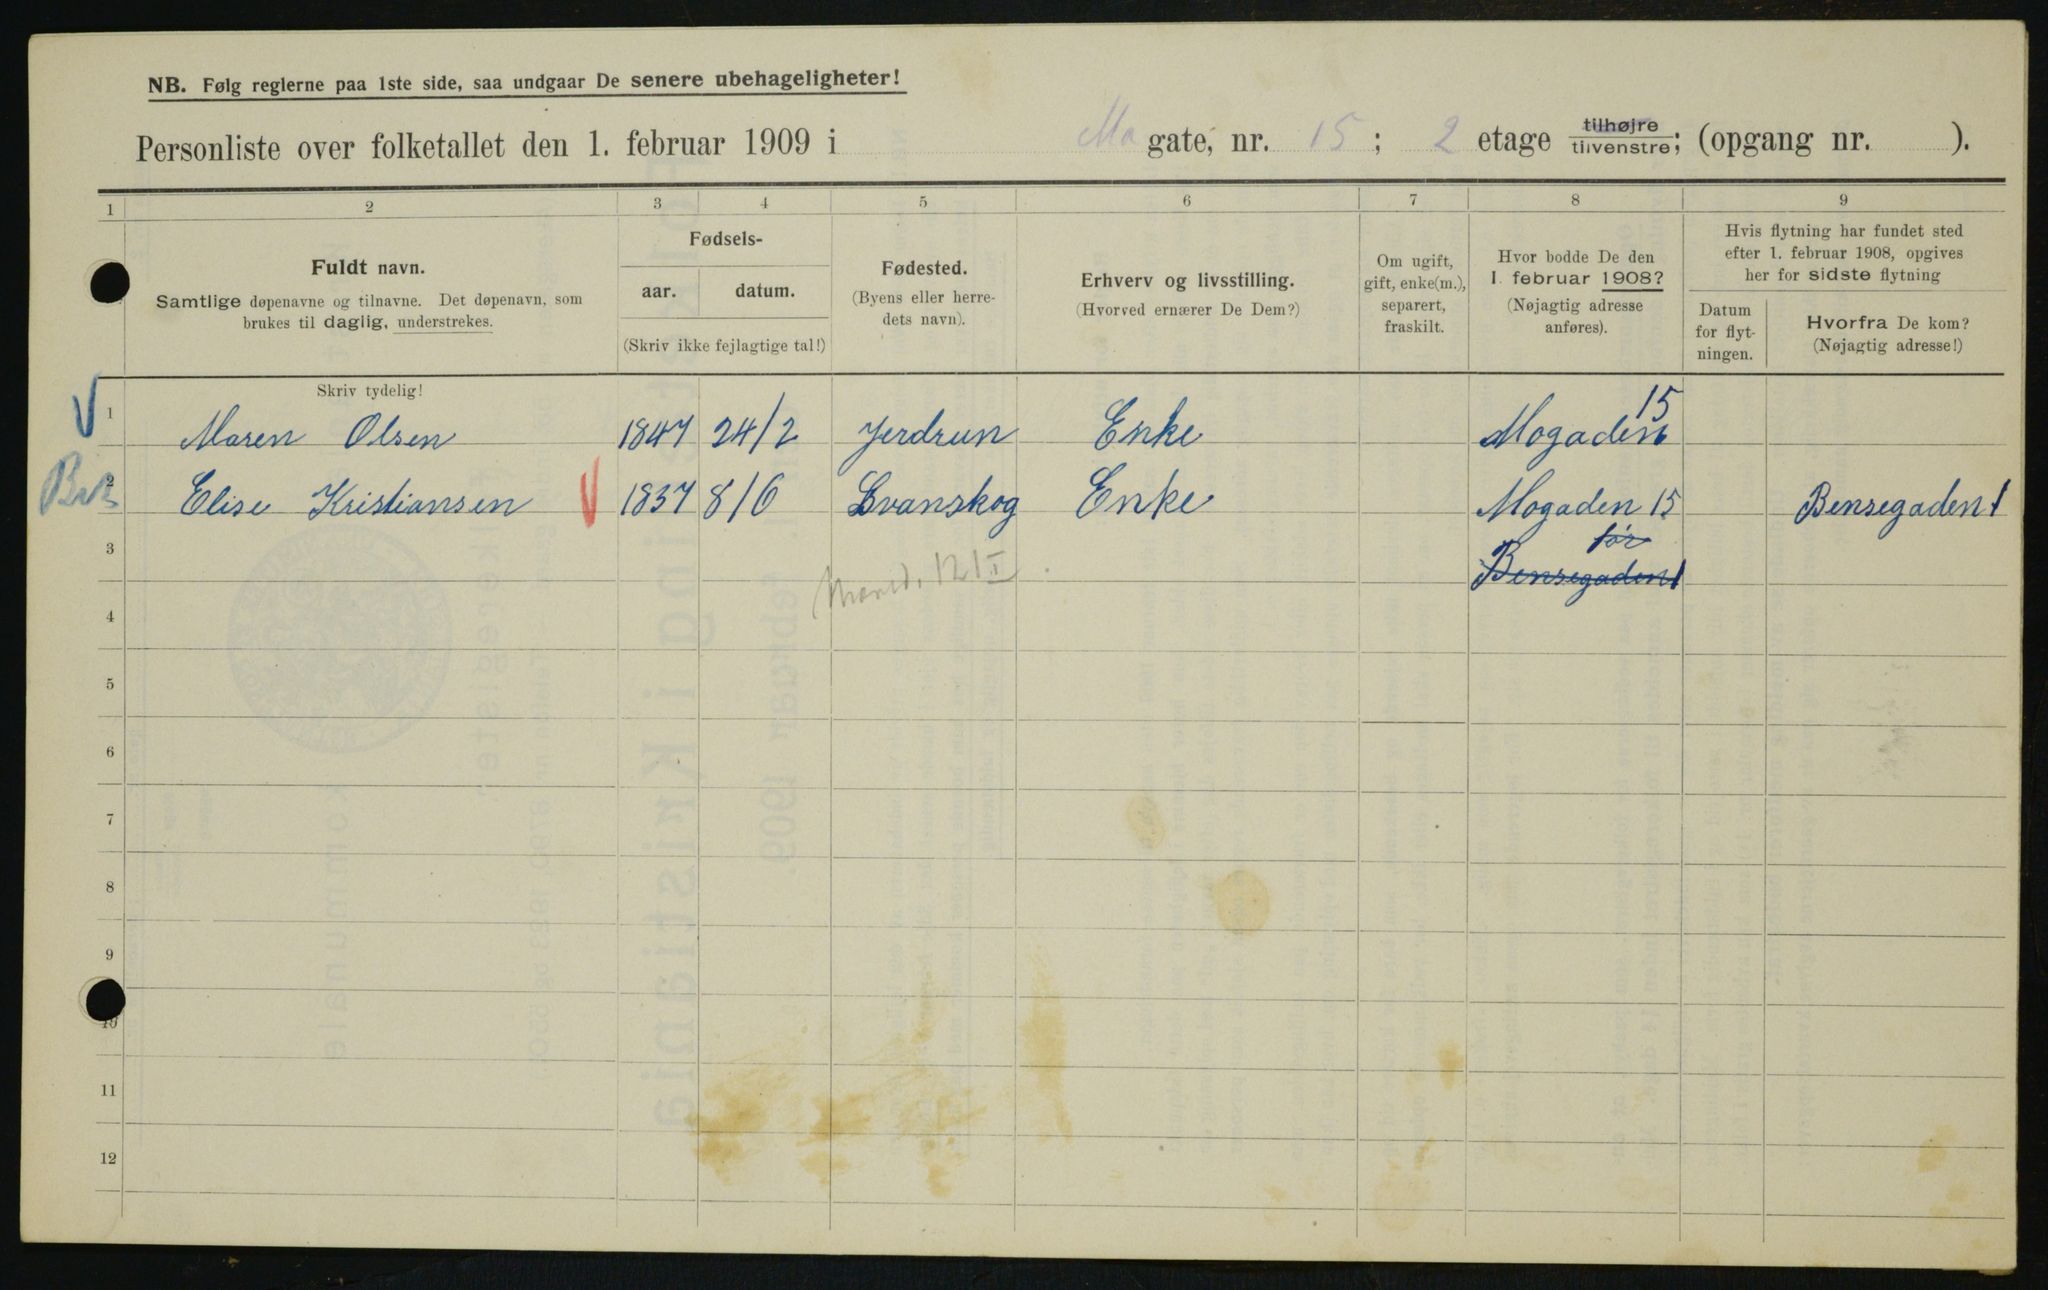 NB. Følg reglerne paa 1ste side, saa undgaar De senere ubehageligheter!
Personliste over folketallet den 1. februar 1909 i Mo gate, nr. 15 ; 2 etage tilhøjre tilvenstre; (opgang nr. ).
1 2 3 4 5 6 7 8 9
Fuldt navn.
Samtlige døpenavne og tilnavne. Det døpenavn, som
brukes til daglig, understrekes.
Fødsels-
aar. datum.
(Skriv ikke fejlagtige tal!)
Fødested.
(Byens eller herre-
dets navn).
Erhverv og livsstilling.
(Hvorved ernærer De Dem?)
Om ugift,
gift, enke(m.),
separert,
fraskilt.
Hvor bodde De den
1. februar 1908?
(Nøjagtig adresse
anføres).
Hvis flytning har fundet sted
efter 1. februar 1908, opgives
her for sidste flytning
Datum
for flyt-
ningen.
Hvorfra De kom?
(Nøjagtig adresse!)
Skriv tydelig!
1 Maren Olsen 1847 24/2 Jerdrun Enke Mogaden 15
2 Elise Kristiansen 1837 8/6 Svanskog Enke Mogaden 15 Bensegaden 1
3 før
Bensegaden 1
4
5
6
7
8
9
10
11
12